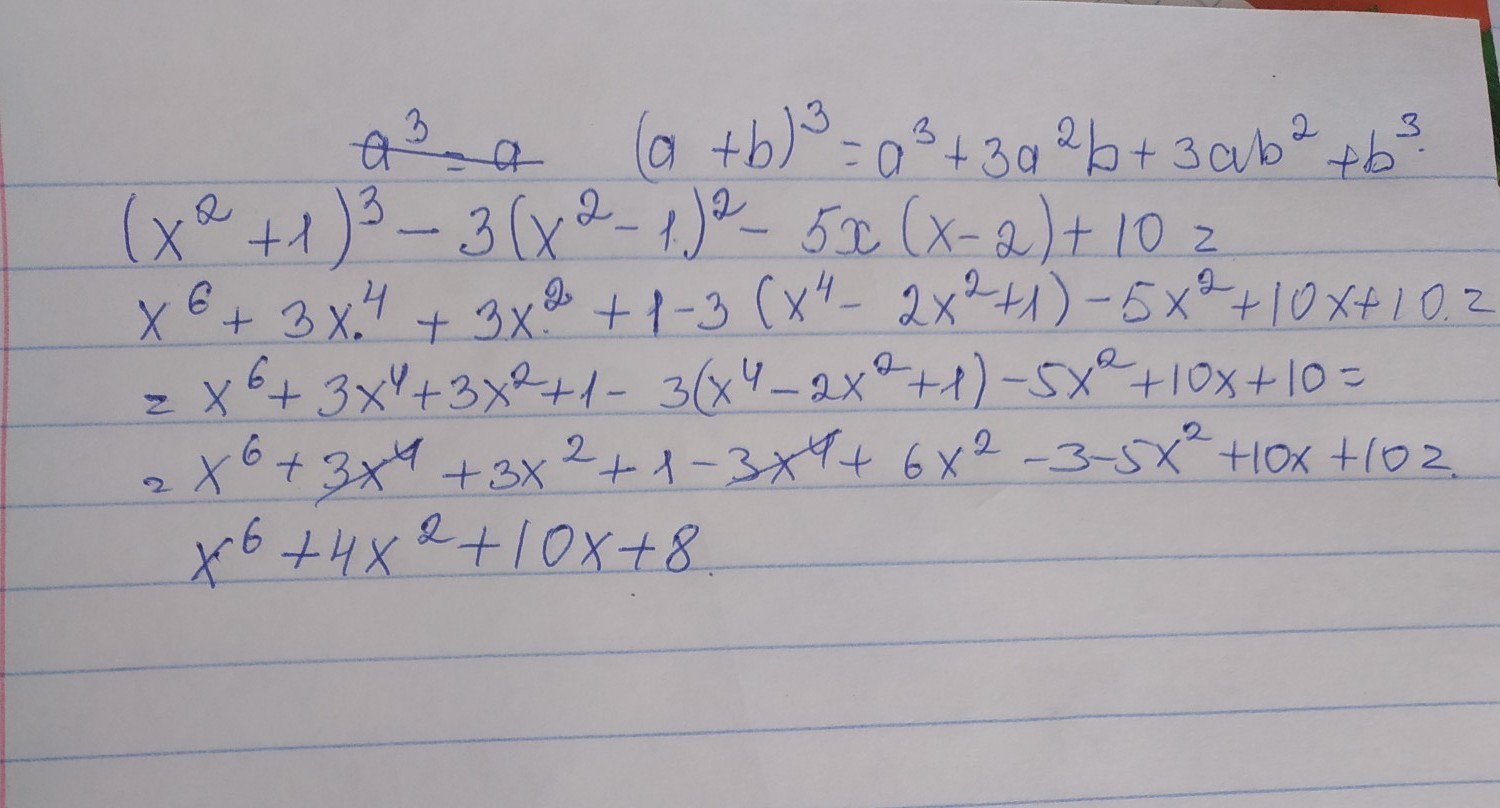 a³ = a (a + b)³ = a³ + 3a²b + 3ab² + b³.
(x² + 1)³ - 3(x² - 1)² - 5x(x - 2) + 10 =
x⁶ + 3x⁴ + 3x² + 1 - 3(x⁴ - 2x² + 1) - 5x² + 10x + 10 =
= x⁶ + 3x⁴ + 3x² + 1 - 3(x⁴ - 2x² + 1) - 5x² + 10x + 10 =
= x⁶ + 3x⁴ + 3x² + 1 - 3x⁴ + 6x² - 3 - 5x² + 10x + 10 =
x⁶ + 4x² + 10x + 8.